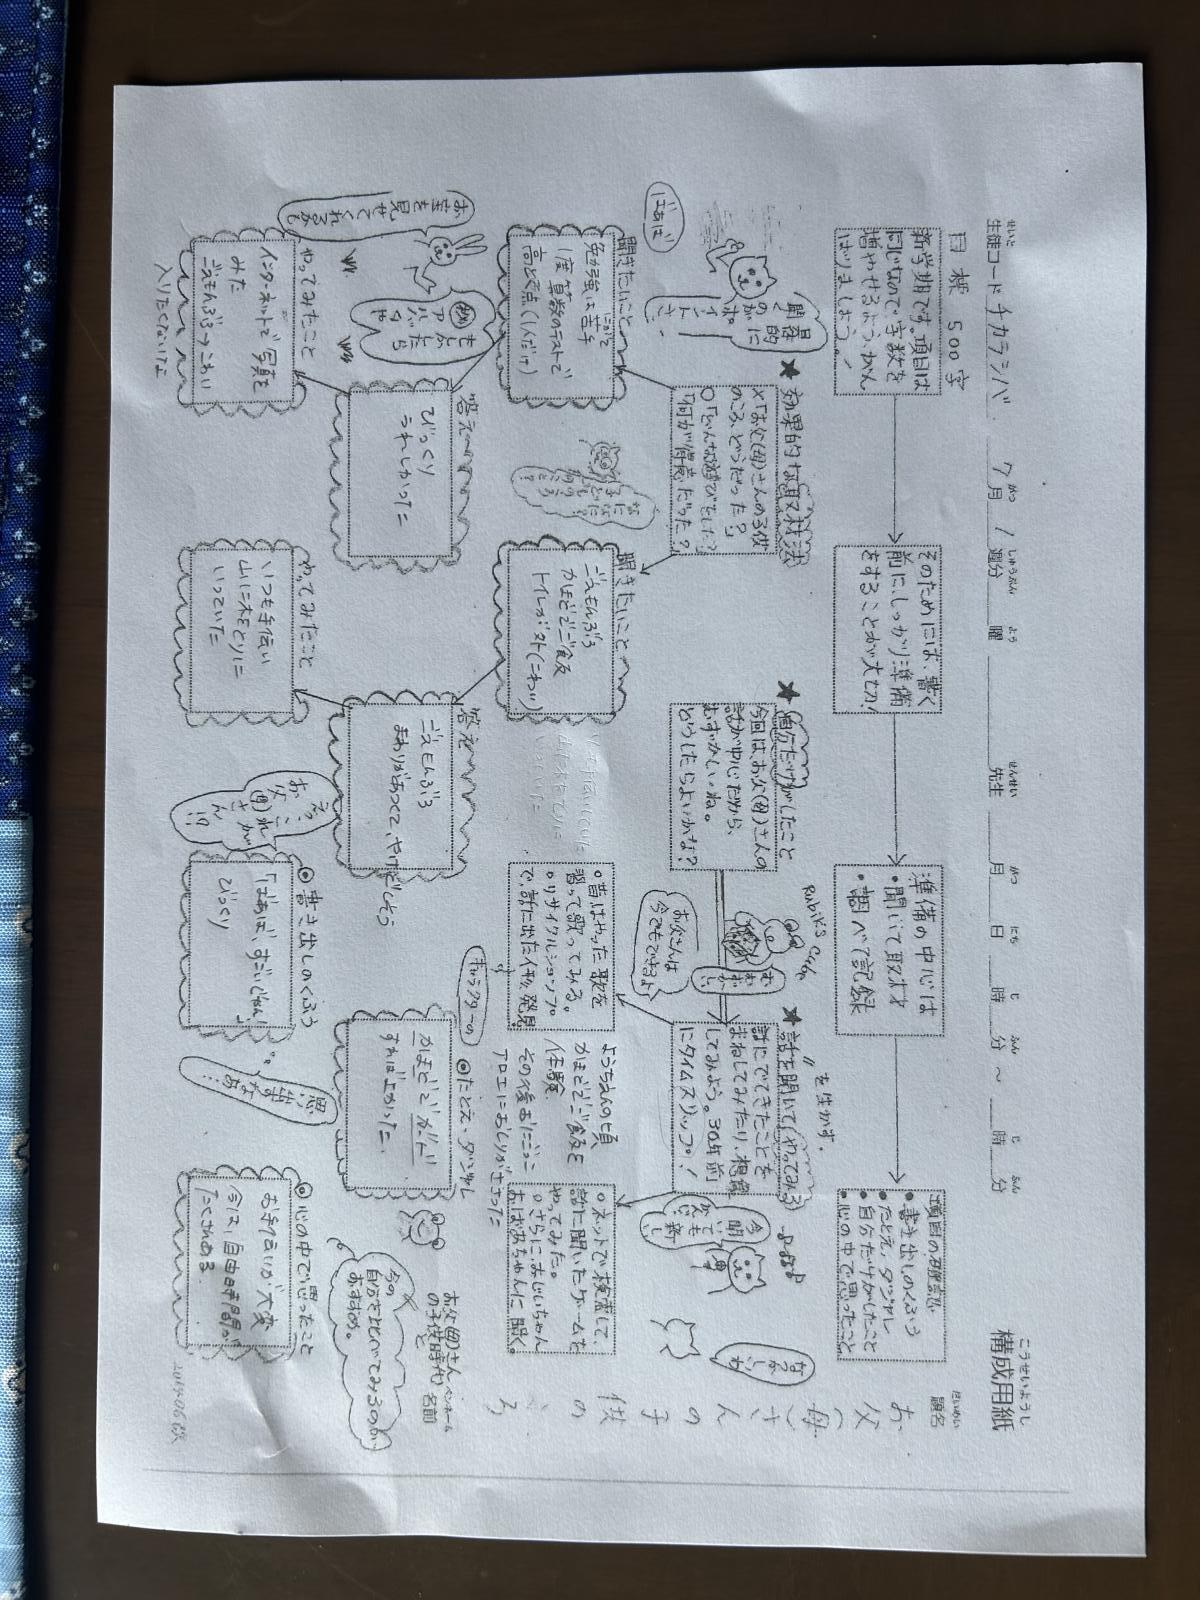 構成用紙
こうせいようし
生徒コード チカラシバ 7月 1週分 曜 先生 月 日 時 分 〜 時 分
題名
お父(母)さんの子供のころ
目標 500字
新学期です。項目は
同じなので字数を
増やせるよう、がん
ばりましょう!
そのためには、書く
前に、しっかり準備
をすることが大切!
準備の中心は
・聞いて取材
・調べて記録
項目の確認
・書き出しのくふう
・たとえ、ダジャレ
・自分だけがしたこと
・心の中で思ったこと
★効果的な取材法
×「お父(母)さんの子供
のころ、どうだった?」
○「どんな遊びをした?」
「何が得意だった?」
具体的に
聞くのが
ポイントさ!
ばあば
★自分だけがしたこと
今回は、お父(母)さんの
話が中心だから、
むずかしいね。
どうしたらよいかな?
Rubik's Cube
お父さんは
今でもできるよ
★話を聞いて(やってみる)
を生かす。
話にでてきたことを
まねしてみたり、想像
してみよう。30年前
にタイムスリップ!
○昔はやった歌を
習って歌ってみる。
○リサイクルショップ
で、話に出たイ物、発見
○ネットで検索して、
話に聞いたゲームを
やってみた。
○さらにおじいちゃん
おばあちゃんに聞く。
なつかしいね
聞きたいこと
勉強は苦手
にがて
1度算数のテストで
高とく点(1人だけ)
聞きたいこと
ごえもんぶろ
かまどでご飯
トイレが外(こわい)
ようちえんの頃
かまどでご飯を
体験
その後おにごっこ
アロエにおしりがささった
答え
びっくり
うれしかった
答え
ごえもんぶろ
まわりがあつくて、やけどしそう
◎たとえ・ダジャレ
かまどでガード
すれば上がった
キャラクターの
お父(母)さん
の子供時代と
今の
自分をくらべてみるのが
おすすめ。
ペンネーム
名前
お宝を見せてくれるかも
もしかしたら
アルバムや
やってみたこと
インターネットで写真を
みた
ごえもんぶろ→こわい
入りたくないよ
やってみたこと
いつも手伝い
山に木をとりに
いっていた
えっ、これが
お父(母)さん
!?
◎書き出しのくふう
「ばあば、すごいじゃん。」
びっくり
思い出すなあ…
◎心の中で思ったこと
お手伝いが大変
今は、自由時間が
たくさんある